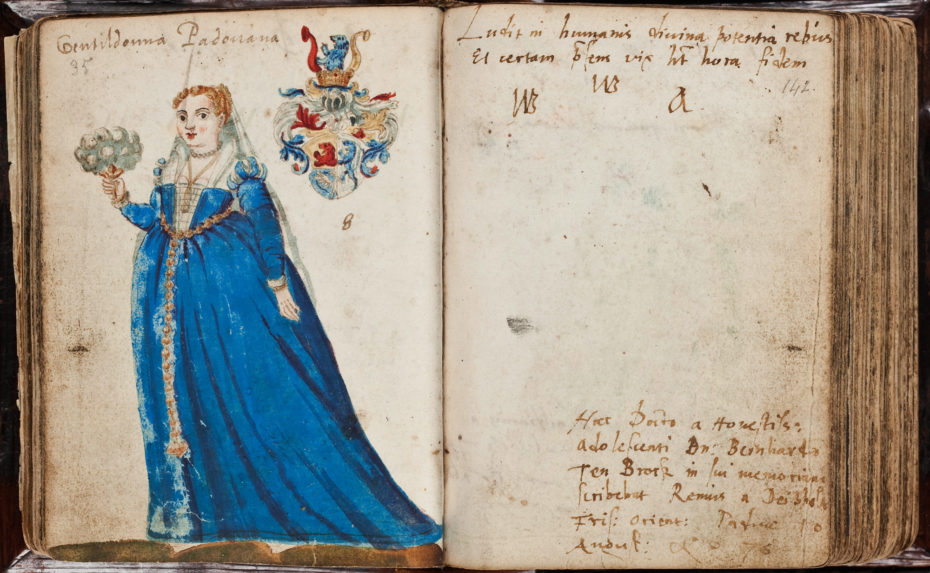 Gentildonna Padouana
35
8
Ludit in humanis divina potentia rebus
Et certam p̃sens vix ht̃ hora fidem
142.
W W A
Hæc Docto a Honestiss:
adolescenti Dn: Bernhardo
Ten Broek in sui memoriam
scribebat Remius a
Fris: orient: